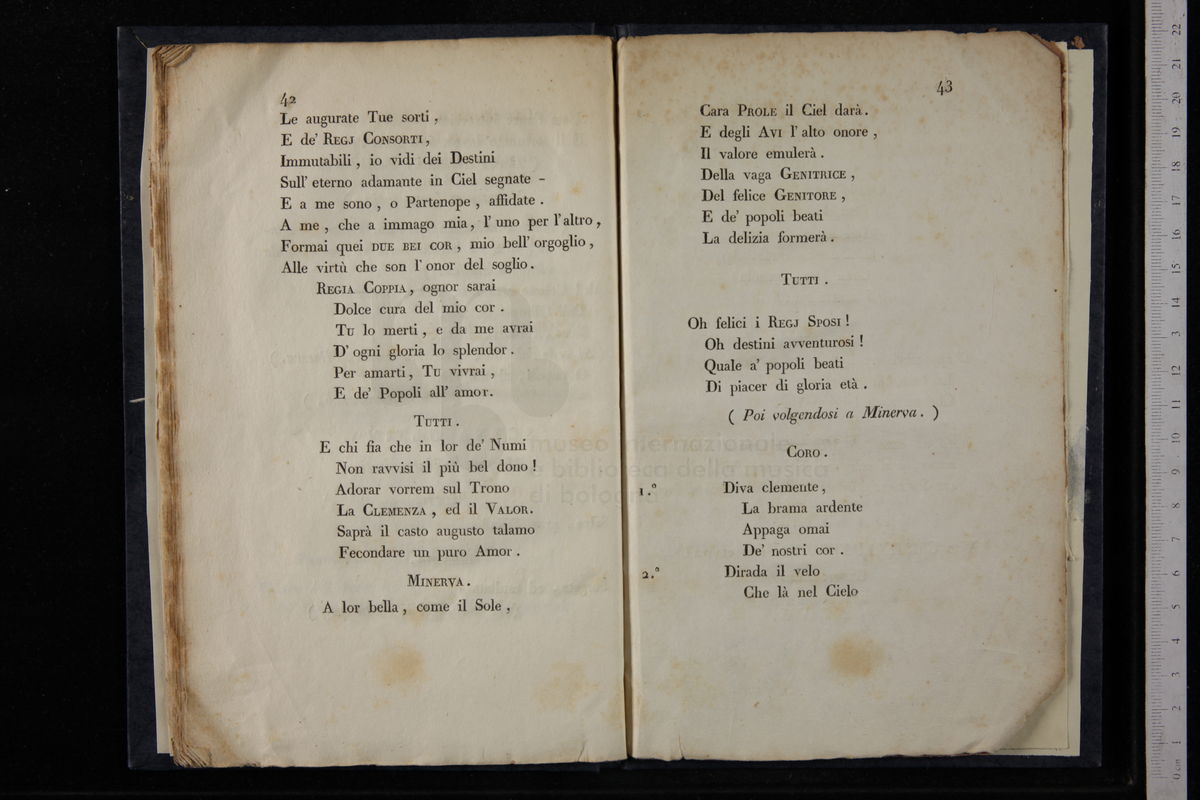 42
Le augurate Tue sorti ,
E de' REGJ CONSORTI ,
Immutabili , io vidi dei Destini
Sull' eterno adamante in Ciel segnate -
E a me sono , o Partenope , affidate .
A me , che a immago mia , l' uno per l' altro ,
Formai quei DUE BEI COR , mio bell' orgoglio ,
Alle virtù che son l' onor del soglio .
REGIA COPPIA , ognor sarai
Dolce cura del mio cor .
TU lo merti , e da me avrai
D' ogni gloria lo splendor .
Per amarti , TU vivrai ,
E de' Popoli all' amor .
TUTTI .
E chi fia che in lor de' Numi
Non ravvisi il più bel dono !
Adorar vorrem sul Trono
La CLEMENZA , ed il VALOR .
Saprà il casto augusto talamo
Fecondare un puro Amor .
MINERVA .
A lor bella , come il Sole ,
43
Cara PROLE il Ciel darà .
E degli AVI l' alto onore ,
Il valore emulerà .
Della vaga GENITRICE ,
Del felice GENITORE ,
E de' popoli beati
La delizia formerà .
TUTTI .
Oh felici i REGJ SPOSI !
Oh destini avventurosi !
Quale a' popoli beati
Di piacer di gloria età .
( Poi volgendosi a Minerva . )
CORO .
1.º Diva clemente ,
La brama ardente
Appaga omai
De' nostri cor .
2.º Dirada il velo
Che là nel Cielo
museo internazionale
e biblioteca della musica
di bologna